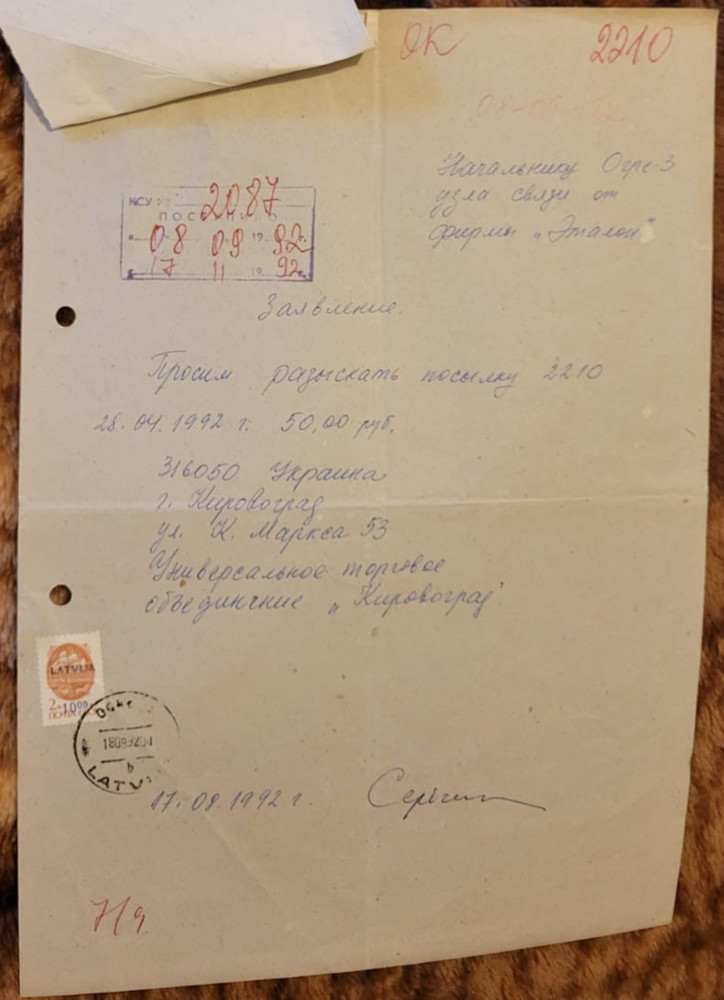 ОК 2210
Начальнику Огре-3
узла связи от
фирмы „Эталон"
КСУ № 2087
"08 09 1992 г.
"17 11 1992 г.
Заявление.
Просим разыскать посылку 2210
28.04.1992 г. 50,00 руб.
316050 Украина
г. Кировоград
ул. К. Маркса 53
Универсальное торговое
объединение „Кировоград"
LATVIJA
1000
LATVI
17.08.1992 г.